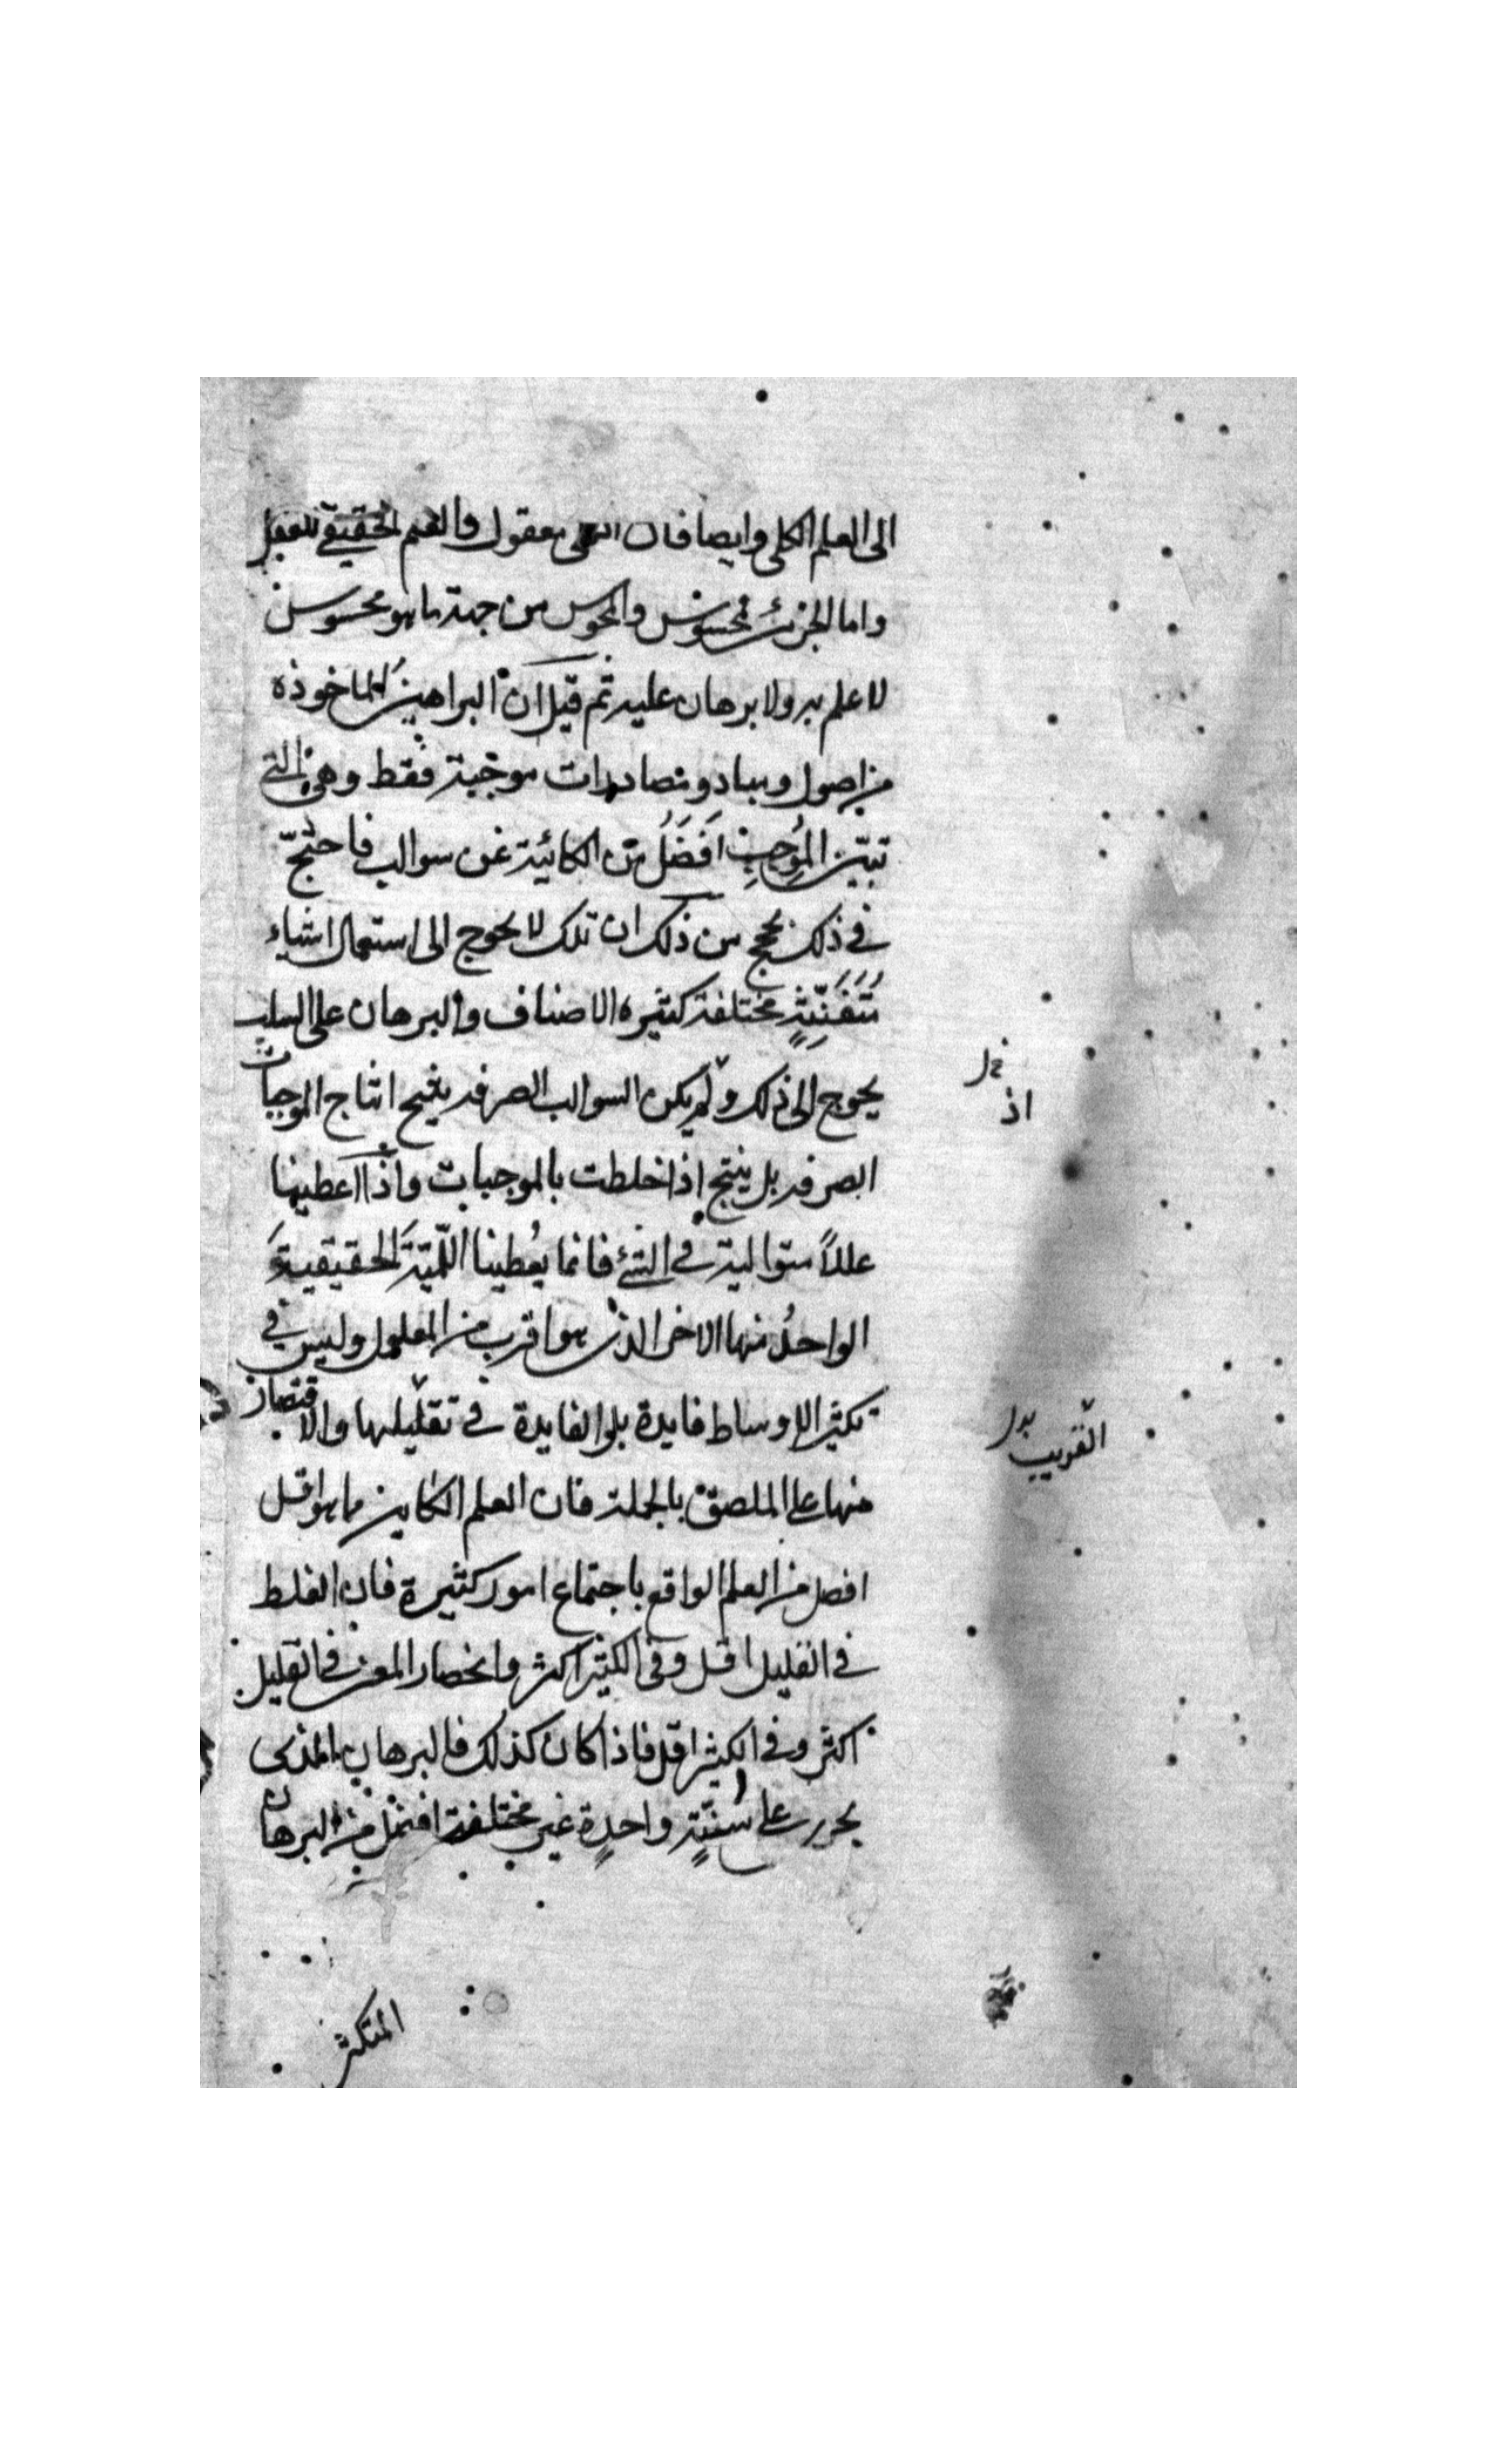 الى العلم الكلى وايضا فان الكلى معقول والعلم الحقيقى للعقل
واما الجزئى فمحسوس والمحسوس من جهة ما هو محسوس
لا علم به ولا برهان عليه ثم قيل ان البراهين الماخوذه
من اصول ومباد ومصادرات موجبة فقط وهى التى
تبين الموجب افضل من الكائنة عن سوالب فاحتج
فى ذلك بحجج من ذلك ان تلك لا يحوج الى استعمال اشياء
متفننة مختلفة كثيره الاصناف والبرهان على السلب
يحوج الى ذلك ولم يكن السوالب الصرفه ينتج انتاج الموجبات
الصرفه بل ينتج اذا خلطت بالموجبات واذا اعطينا
عللاً متوالية فى الشئ فانما يعطينا اللمّيّة الحقيقية
الواحد منها الاخر الذى هو اقرب من المعلول وليس فى
تكثير الاوساط فايدة بل الفايدة فى تقليلها والاقتصار
منها على الملصق بالجملة فان العلم الكاين مما هو اقل
افضل من العلم الواقع باجتماع امور كثيرة فان الغلط
فى القليل اقل وفى الكثير اكثر وانحصار المعنى فى القليل
اكثر وفى الكثير اقل فاذا كان كذلك فالبرهان الذى
يحرر على سُنّةٍ واحدةٍ غير مختلفة افضل من البرهان
اذ
القريب بدل
المتكثر